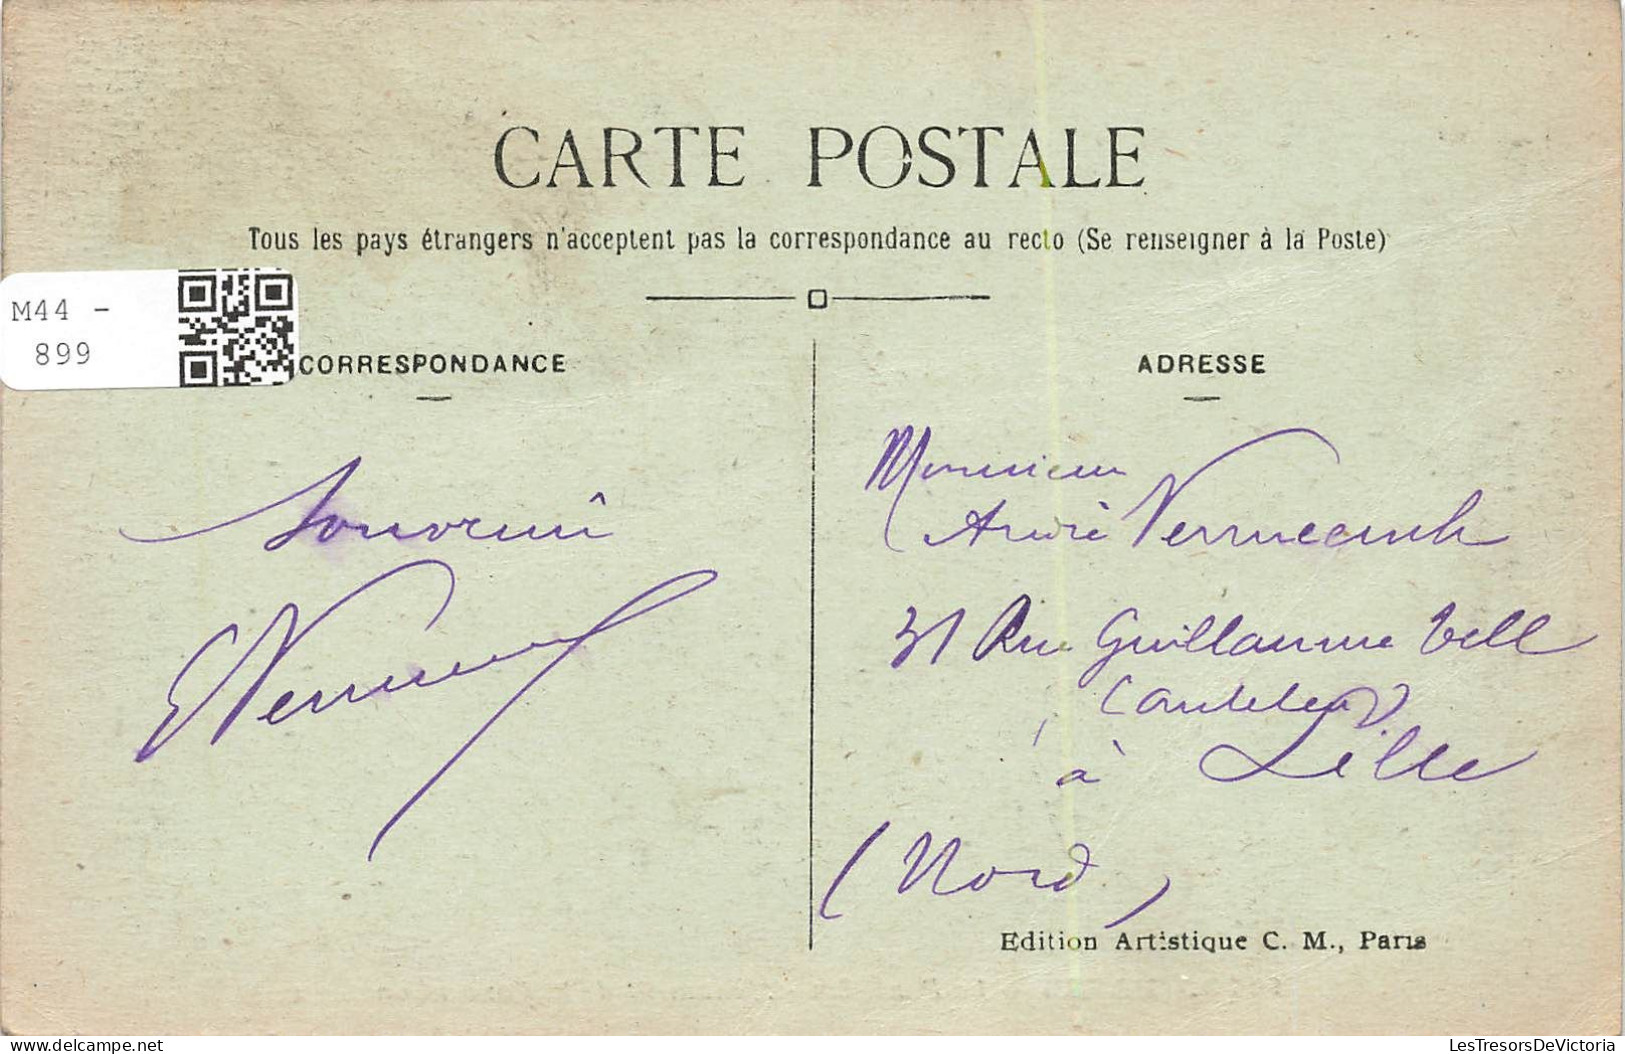 CARTE POSTALE
Tous les pays étrangers n'acceptent pas la correspondance au recto (Se renseigner à la Poste)
M44 -
899
CORRESPONDANCE
ADRESSE
Souvenir
Monsieur
André
31 Rue Guillaume Tell
à Lille
(Nord)
Edition Artistique C. M., Paris
delcampe.net
LesTresorsDeVictoria